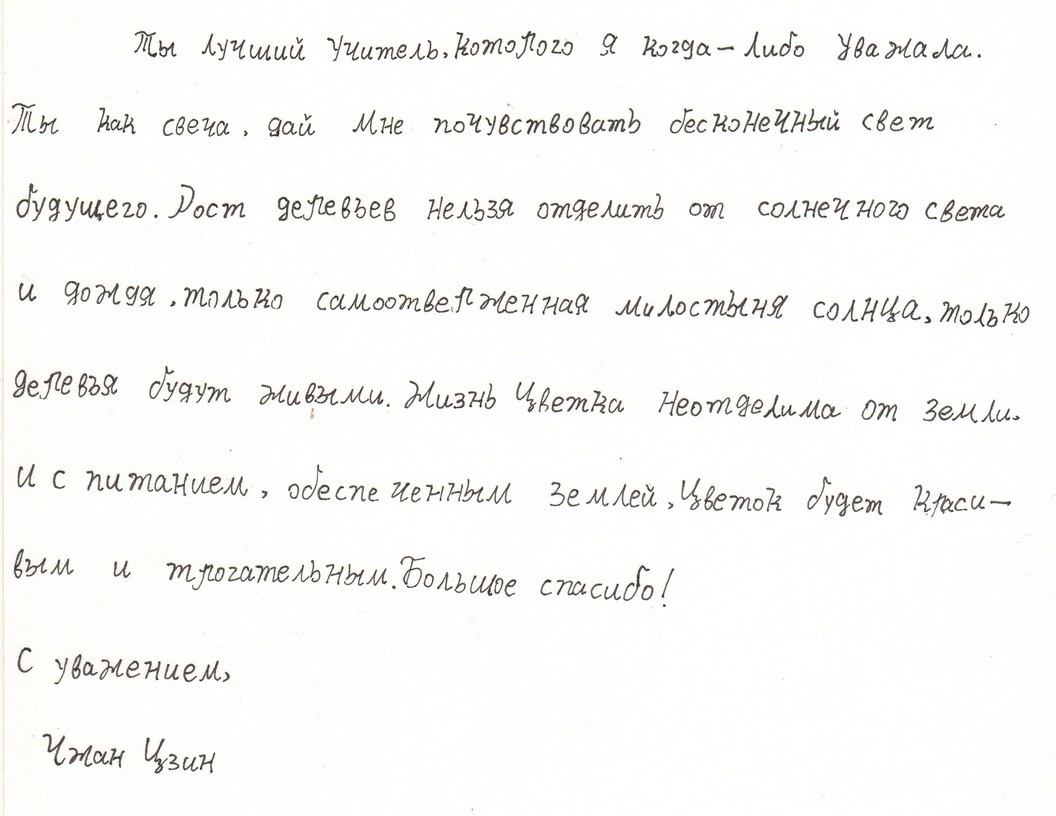 Ты лучший учитель, которого я когда-либо уважала.
Ты как свеча, дай мне почувствовать бесконечный свет
будущего. Рост деревьев нельзя отделить от солнечного света
и дождя, только самоотверженная милостыня солнца, только
деревья будут живыми. Жизнь цветка неотделима от земли.
И с питанием, обеспеченным землей, цветок будет краси-
вым и трогательным. Большое спасибо!
С уважением,
Чжан Цзин